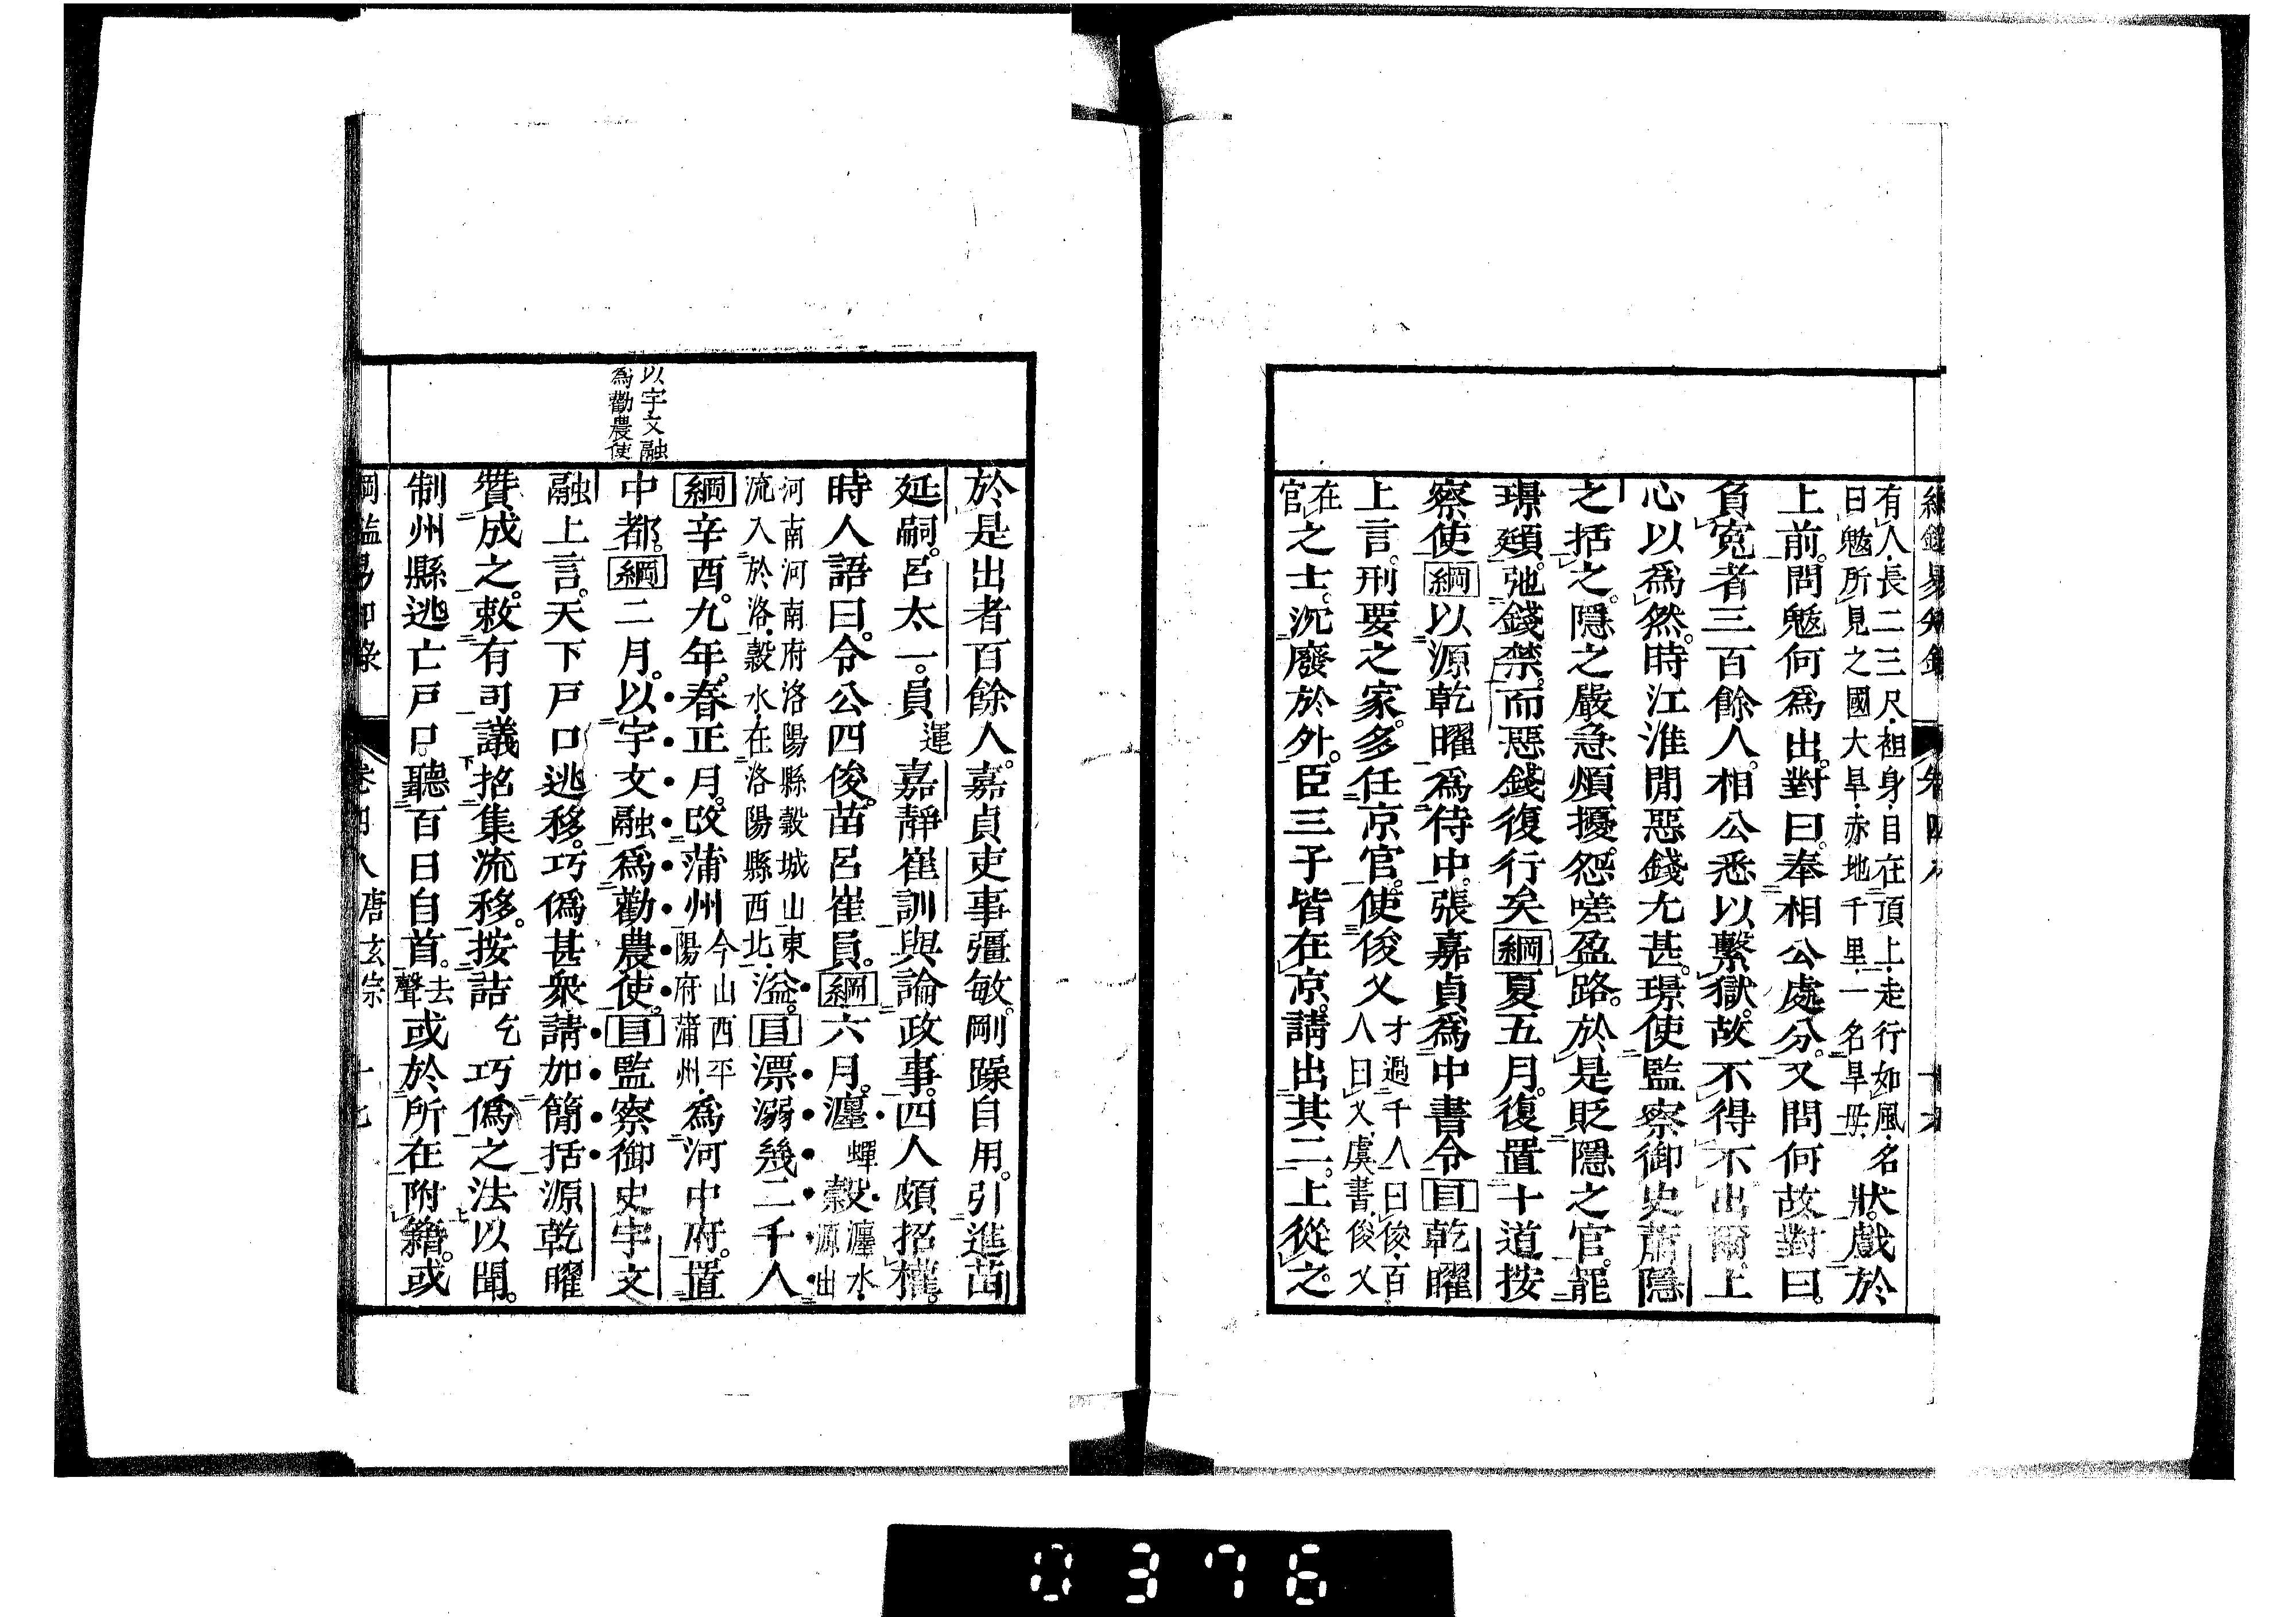 有人長二三尺袒身目在頂上走行如風名
曰魃所見之國大旱赤地千里一名旱母
狀戲於
上前。問魃何爲出。對曰。奉相公處分。又問何故。對曰。
負冤者三百餘人。相公悉以繫獄。故不得不出爾。上
心以爲然。時江淮閒惡錢尤甚。璟使監察御史蕭隱
之括之。隱之嚴急煩擾。怨嗟盈路。於是貶隱之官。罷
璟頲。弛錢禁。而惡錢復行矣綱夏五月。復置十道按
察使綱以源乾曜爲侍中。張嘉貞爲中書令目乾曜
上言。刑要之家。多任京官。使俊乂
才過千人曰俊百
人曰乂虞書俊乂
在
官
之士。沉廢於外。臣三子皆在京。請出其二。上從之。
於是出者百餘人。嘉貞吏事彊敏。剛躁自用。引進苗
延嗣。呂太一。員
運
嘉靜崔訓與論政事。四人頗招權。
時人語曰。令公四俊。苗呂崔員。綱六月。瀍
蟬
穀
瀍水
源出
河南河南府洛陽縣穀城山東
流入於洛穀水在洛陽縣西北
溢。目漂溺幾二千人
綱辛酉。九年。春正月。改蒲州
今山西平
陽府蒲州
爲河中府。置
中都。綱二月。以宇文融爲勸農使。目監察御史宇文
以宇文融
爲勸農使
融上言。天下戸口逃移。巧僞甚衆。請加簡括。源乾曜
贊成之。敕有司議招集流移。按詰
乞
巧僞之法以聞。
制州縣逃亡戸口聽百日自首。
去
聲
或於所在附籍。或
綱鑑易知錄 卷四八 唐玄宗 十七
0376